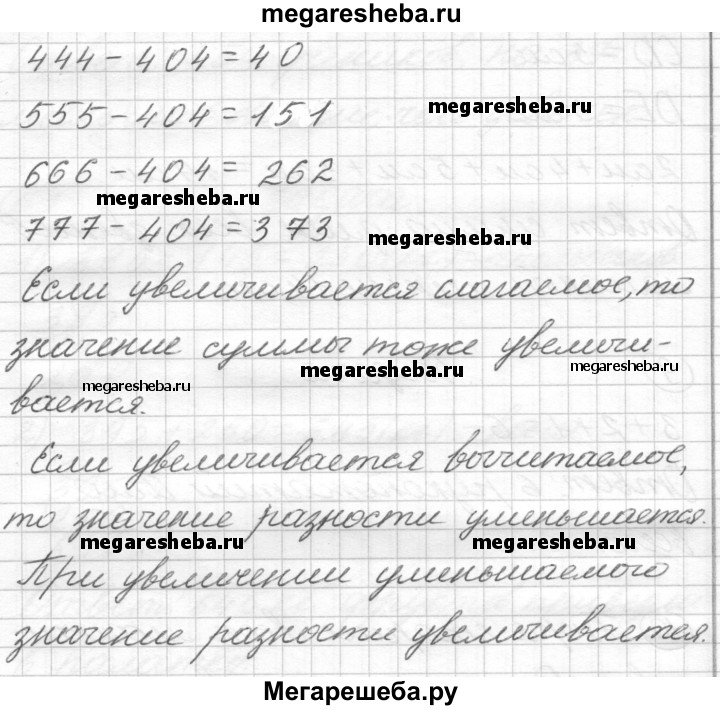 megaresheba.ru
444 - 404 = 40
555 - 404 = 151
megaresheba.ru
666 - 404 = 262
megaresheba.ru
777 - 404 = 373
megaresheba.ru
Если увеличивается слагаемое, то
значение суммы тоже увеличи-
megaresheba.ru
megaresheba.ru
вается.
Если увеличивается вычитаемое,
то значение разности уменьшается.
megaresheba.ru
megaresheba.ru
При увеличении уменьшаемого
значение разности увеличивается.
Мегарешеба.ру